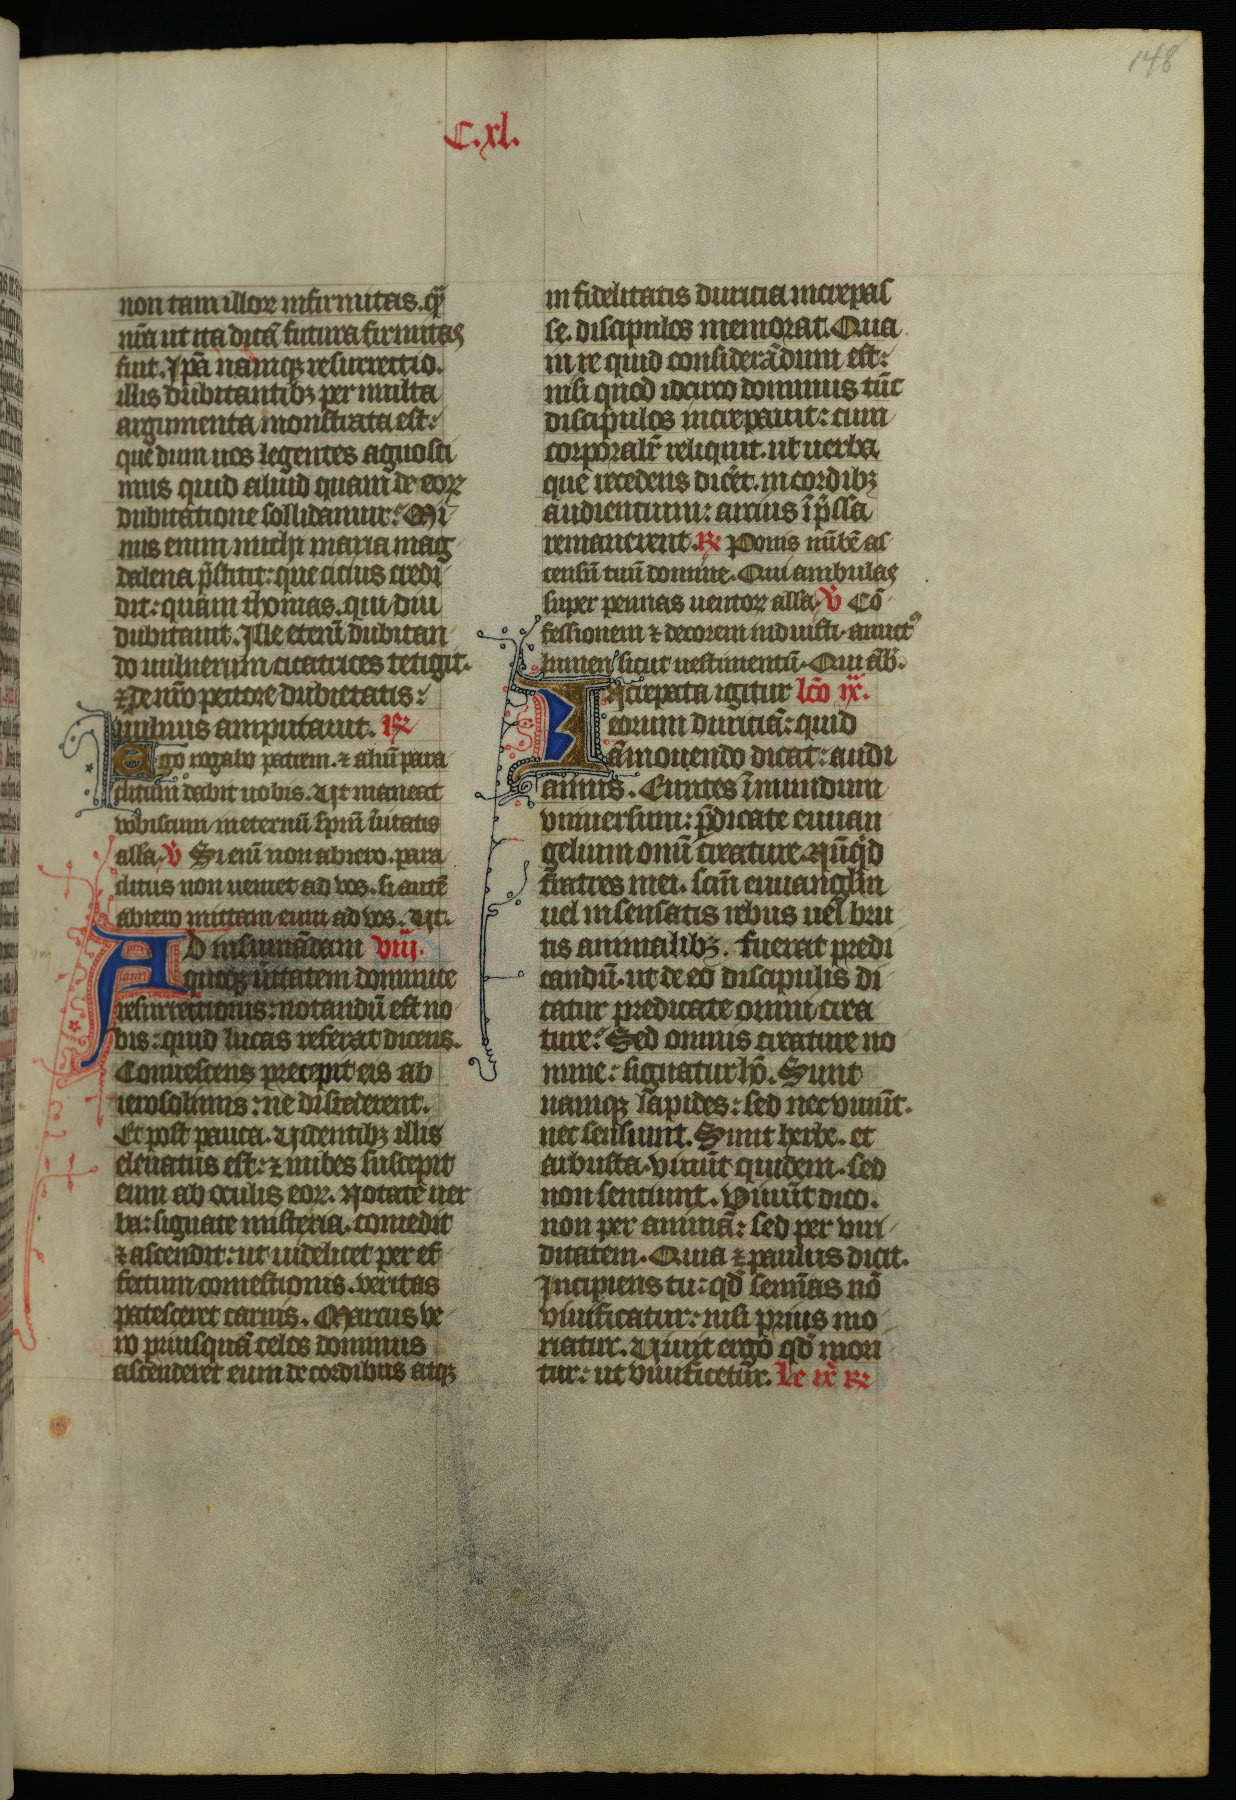 148
C. xl.
non tam illoꝝ infirmitas. qͣ̄
nr̄a ut ita dicā futura firmitas
fuit. Ipā namqꝫ resurrectio.
illis dubitantibꝫ per multa
argumenta monstrata est:
que dum nos legentes agnosci
mus quid aliud quam de eoꝝ
dubitatione sollidamur: Mi
nus enim michi maria mag
dalena p̄stitit: que citius credi
dit: quam thomas. qui diu
dubitauit. Ille etenī dubitan
do uulnerum cicatrices tetigit.
⁊ de nr̄o pectore dubietatis:
uulnus amputauit. ℟
Ego rogabo patrem. ⁊ aliū para
clitum dabit uobis. Ut maneat
vobiscum in eternū sp̄m ūitatis
all̄a. V̄ Si enī non abiero. para
clitus non ueniet ad vos. si autē
abiero mittam eum ad vos. Ut.
AD insinuādam viij.
quoqꝫ ūitatem dominice
resurrectionis: notandū est no
bis: quid lucas referat dicens.
Conuescens precepit eis ab
ierosolimis: ne discederent.
Et post pauca. Uidentibꝫ illis
eleuatus est: ⁊ nubes suscepit
eum ab oculis eoꝝ. Notate uer
ba: signate misteria. comedit
⁊ ascendit: ut uidelicet per ef
fectum comestionis. veritas
patesceret carnis. Marcus ve
ro priusquā celos dominus
ascenderet eum de cordibus atqꝫ
infidelitatis duricia increpas
se. discipulos memorat. Qua
in re quid considerādum est:
nisi quod idcirco dominus tūc
discipulos increpauit: cum
corporalr̄ reliquit. ut uerba
que recedens dicēt. in cordibꝫ
audientium: artius īp̄ssa
remanerent. ℟ Ponis nubē as
censū tuū domine. Qui ambulas
super pennas uentoꝝ all̄a. V̄ Cō
fessionem ⁊ decorem induisti. amictꝰ
lumen sicut uestimentū. Qui āb̄.
Increpata igitur lc̄o ix.
eorum duriciā: quid
āmonendo dicat: audi
amus. Euntes ī mundum
vniuersum: p̄dicate euuan
gelium om̄i creature. Nūqͥd
fratres mei. sc̄m euuangl̄iū
uel insensatis rebus uel bru
tis animalibꝫ. fuerat predi
candū. ut de eo discipulis di
catur predicate omni crea
ture: Sed omnis creature no
mine: signatur hō. Sunt
namqꝫ lapides: sed nec viuūt.
nec sensiunt. Sunt herbe. et
arbusta. viuūt quidem. sed
non sentiunt. Viuūt dico.
non per animā: sed per viri
ditatem. Quia ⁊ paulus dicit.
Incipiens tu: qd̄ semīas nō
viuificatur: nisi prius mo
riatur. Uiuit ergo qd̄ mori
tur: ut viuificetur. Le ix ℟